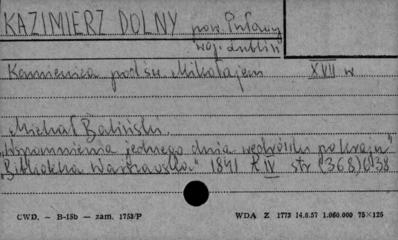 KAZIMIERZ DOLNY pow. Puławy
woj. Lublin
Kamienica pod św. Mikołajem XVII w
Michał Baliński.
"Wspomnienia jednego dnia wędrówki po kraju"
"Biblioteka Warszawska" 1841 t IV str (368) 638
CWD. - B-15b - zam. 1753/P WDA Z 1773 14.6.57 1.060.000 75×125